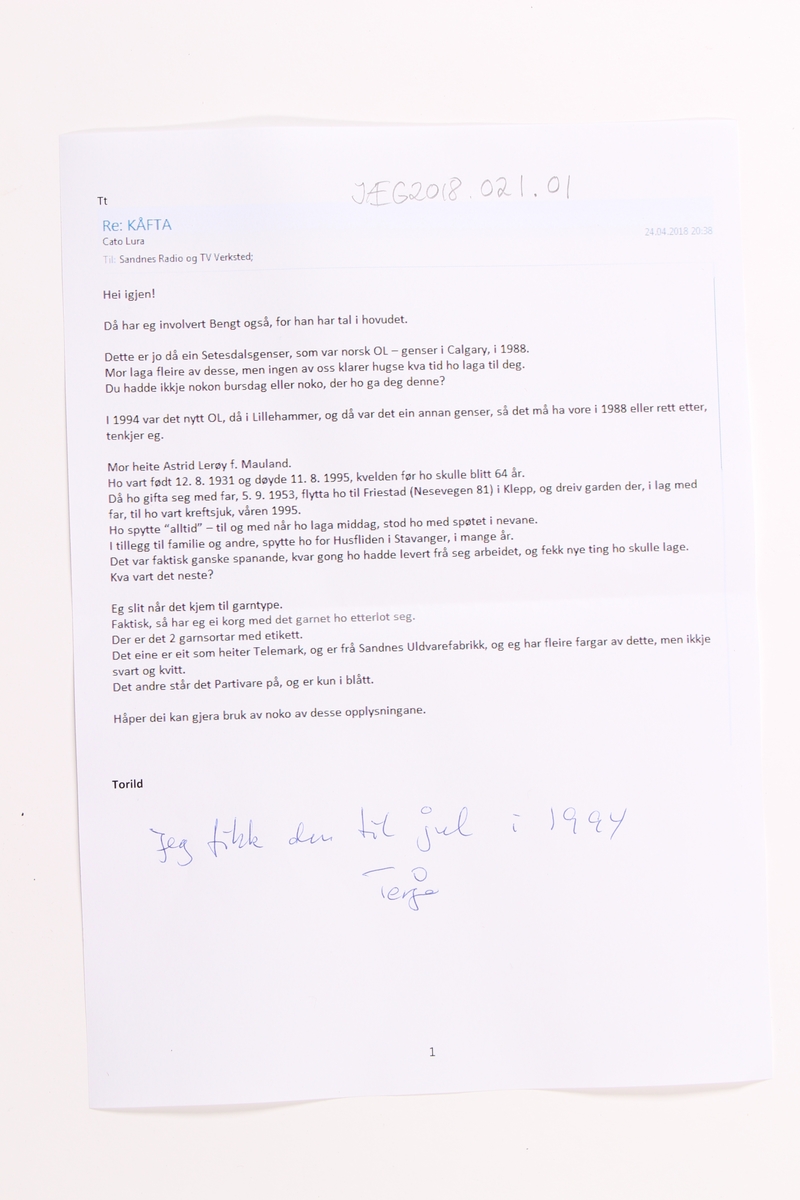 JÆG2018.021.01
Tt
Re: KÅFTA
Cato Lura
24.04.2018 20:38
Til: Sandnes Radio og TV Verksted;
Hei igjen!
Då har eg involvert Bengt også, for han har tal i hovudet.
Dette er jo då ein Setesdalsgenser, som var norsk OL – genser i Calgary, i 1988.
Mor laga fleire av desse, men ingen av oss klarer hugse kva tid ho laga til deg.
Du hadde ikkje nokon bursdag eller noko, der ho ga deg denne?
I 1994 var det nytt OL, då i Lillehammer, og då var det ein annan genser, så det må ha vore i 1988 eller rett etter,
tenkjer eg.
Mor heite Astrid Lerøy f. Mauland.
Ho vart født 12. 8. 1931 og døyde 11. 8. 1995, kvelden før ho skulle blitt 64 år.
Då ho gifta seg med far, 5. 9. 1953, flytta ho til Friestad (Nesevegen 81) i Klepp, og dreiv garden der, i lag med
far, til ho vart kreftsjuk, våren 1995.
Ho spytte "alltid" – til og med når ho laga middag, stod ho med spøtet i nevane.
I tillegg til familie og andre, spytte ho for Husfliden i Stavanger, i mange år.
Det var faktisk ganske spanande, kvar gong ho hadde levert frå seg arbeidet, og fekk nye ting ho skulle lage.
Kva vart det neste?
Eg slit når det kjem til garntype.
Faktisk, så har eg ei korg med det garnet ho etterlot seg.
Der er det 2 garnsortar med etikett.
Det eine er eit som heiter Telemark, og er frå Sandnes Uldvarefabrikk, og eg har fleire fargar av dette, men ikkje
svart og kvitt.
Det andre står det Partivare på, og er kun i blått.
Håper dei kan gjera bruk av noko av desse opplysningane.
Torild
Jeg fikk den til jul i 1994
Terje
1